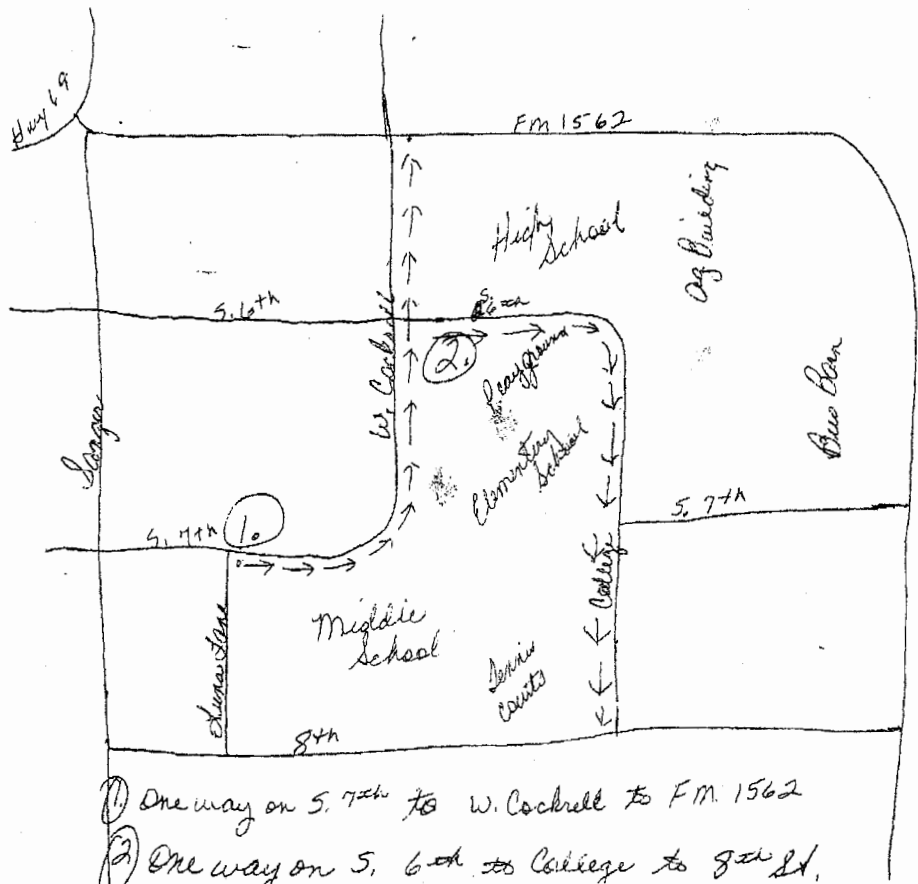 Hwy 69
FM 1562
High
School
Ag Building
S. 6th
S.
6th
2.
Playground
W. Cockrell
Bus Barn
Elementery
School
S. 7th
1.
S. 7th
College
Middle
School
Tennis
Courts
Lane
8th
1. One way on S. 7th to W. Cockrell to F.M. 1562
2 One way on S. 6th to College to 8th St.